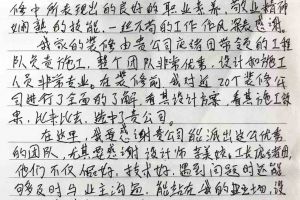 修中所表现出的良好的职业素养、敬业精神
娴熟的技能，一丝不苟的工作作风深表感谢。
我家的装修由贵公司庞绪国带领的工程
队负责施工，整个团队非常优秀，设计和施工
人员非常专业。在装修前我对近20个装修公
司进行了全面的了解，看其设计方案，看其施工效
果，比来比去，选中了贵公司。
在这里，我要感谢贵公司能派出这个优秀
的团队，尤其要感谢设计师李美姣、工长庞绪国，
他们不仅人很好，技术好，遇到问题时还能
够及时与业主沟通，能站在我的